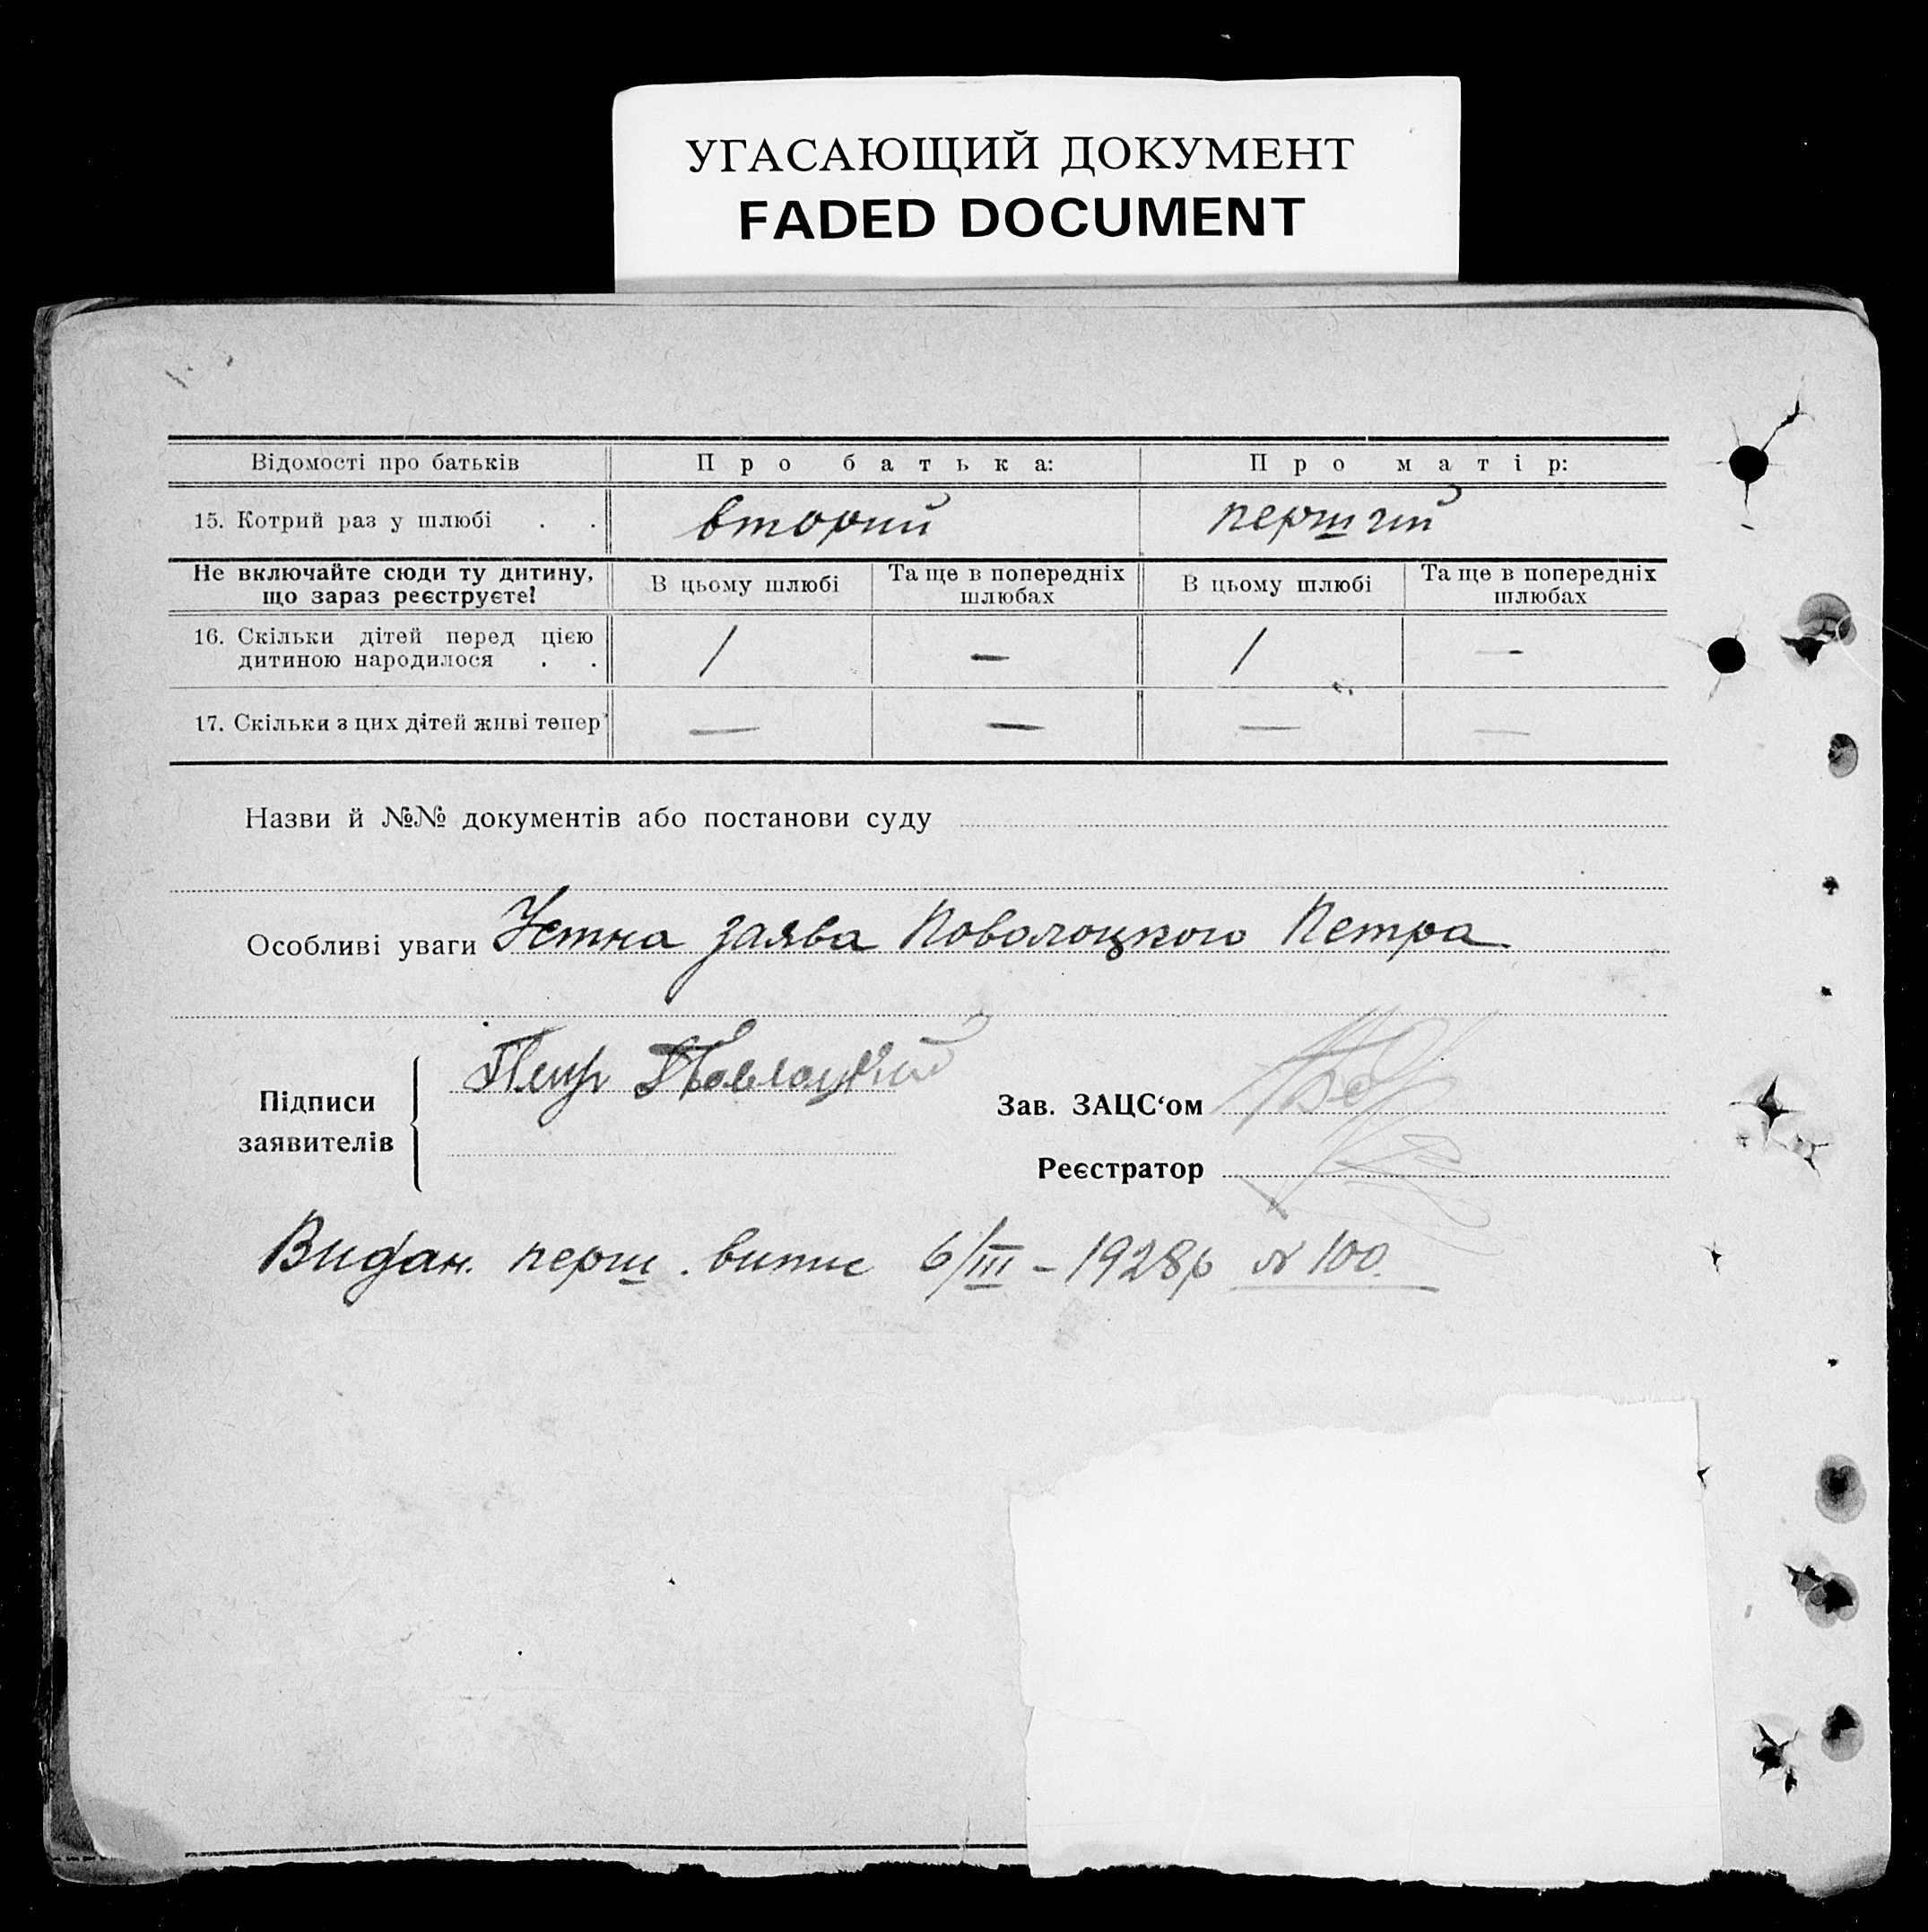 УГАСАЮЩИЙ ДОКУМЕНТ
FADED DOCUMENT
Відомості про батьків Про батька: Про матір:
15. Котрий раз у шлюбі . . вторий перший
Не включайте сюди ту дитину, що зараз реєструєте! В цьому шлюбі Та ще в попередніх шлюбах В цьому шлюбі Та ще в попередніх шлюбах
16. Скільки дітей перед цією дитиною народилося . . 1 — 1 —
17. Скільки з цих дітей живі тепер — — — —
Назви й №№ документів або постанови суду
Особливі уваги Устна заява Поволоцкого Петра
Підписи заявителів Петр
Зав. ЗАЦС‘ом
Реєстратор
Видан. перш. витис 6/III – 1928р № 100.